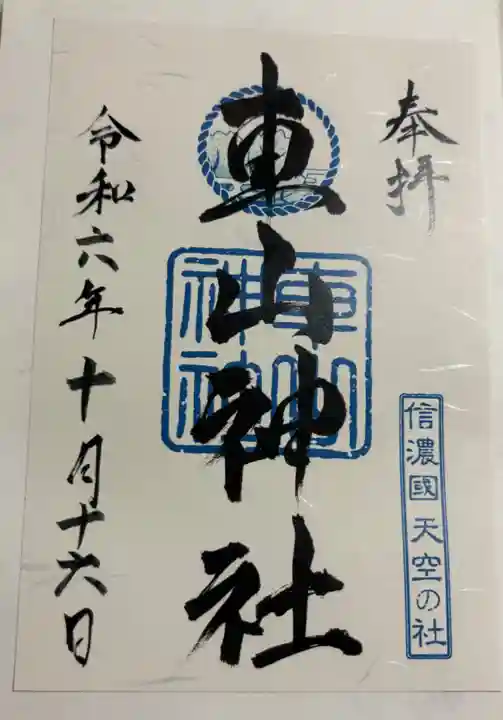 奉拝
信濃國 天空の社
車山神社
車山
神社
令和六年十月十六日